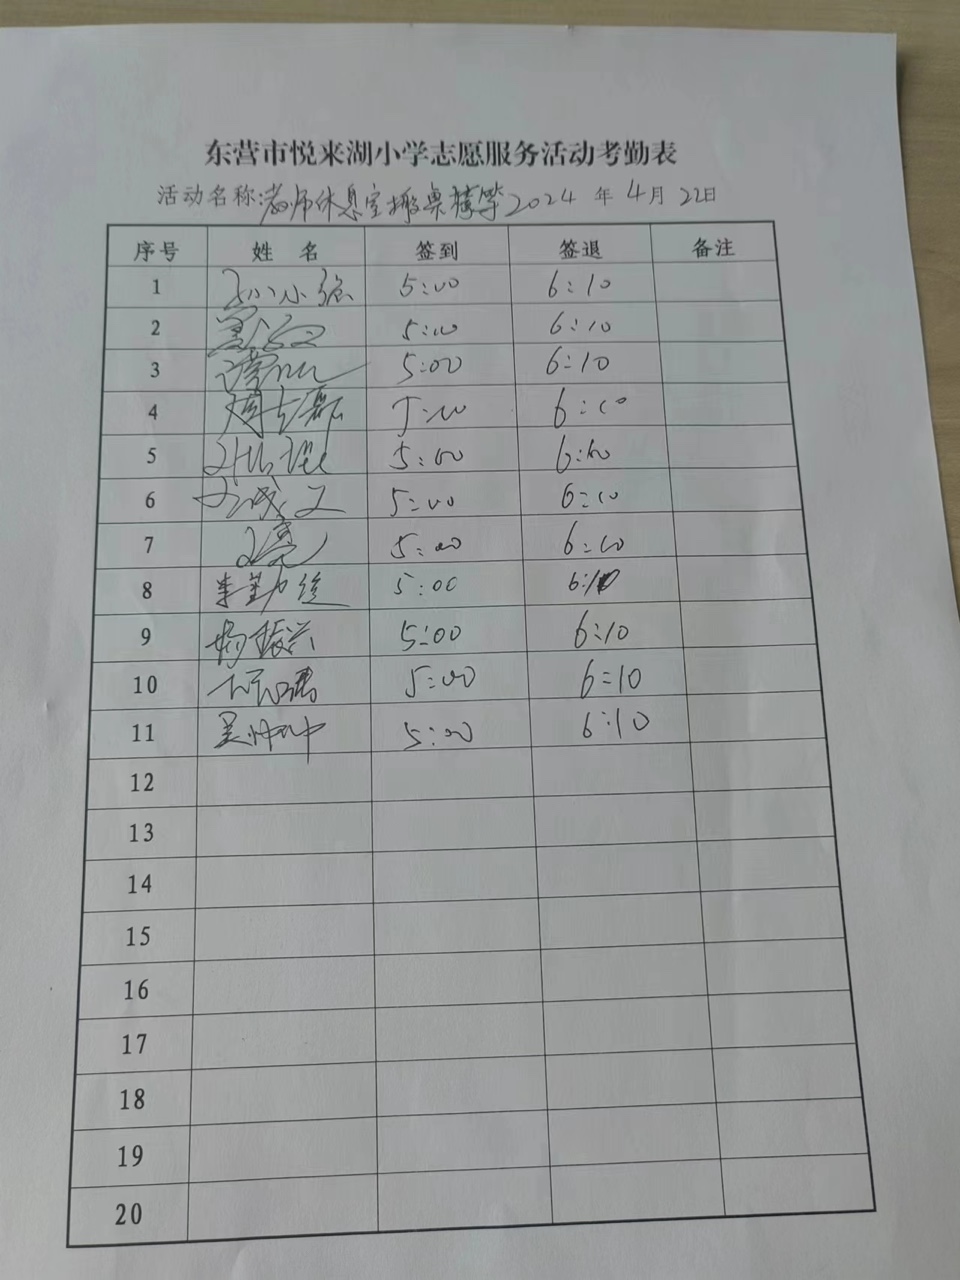 东营市悦来湖小学志愿服务活动考勤表
活动名称:教师休息室搬桌椅等 2024 年 4月 22日
序号 姓 名 签到 签退 备注
1 孙小强 5:00 6:10
2 5:00 6:10
3 5:00 6:10
4 周志磊 5:00 6:10
5 5:00 6:10
6 5:00 6:10
7 王亮 5:00 6:10
8 李勤俭 5:00 6:10
9 杨振兴 5:00 6:10
10 5:00 6:10
11 吴帅中 5:00 6:10
12
13
14
15
16
17
18
19
20